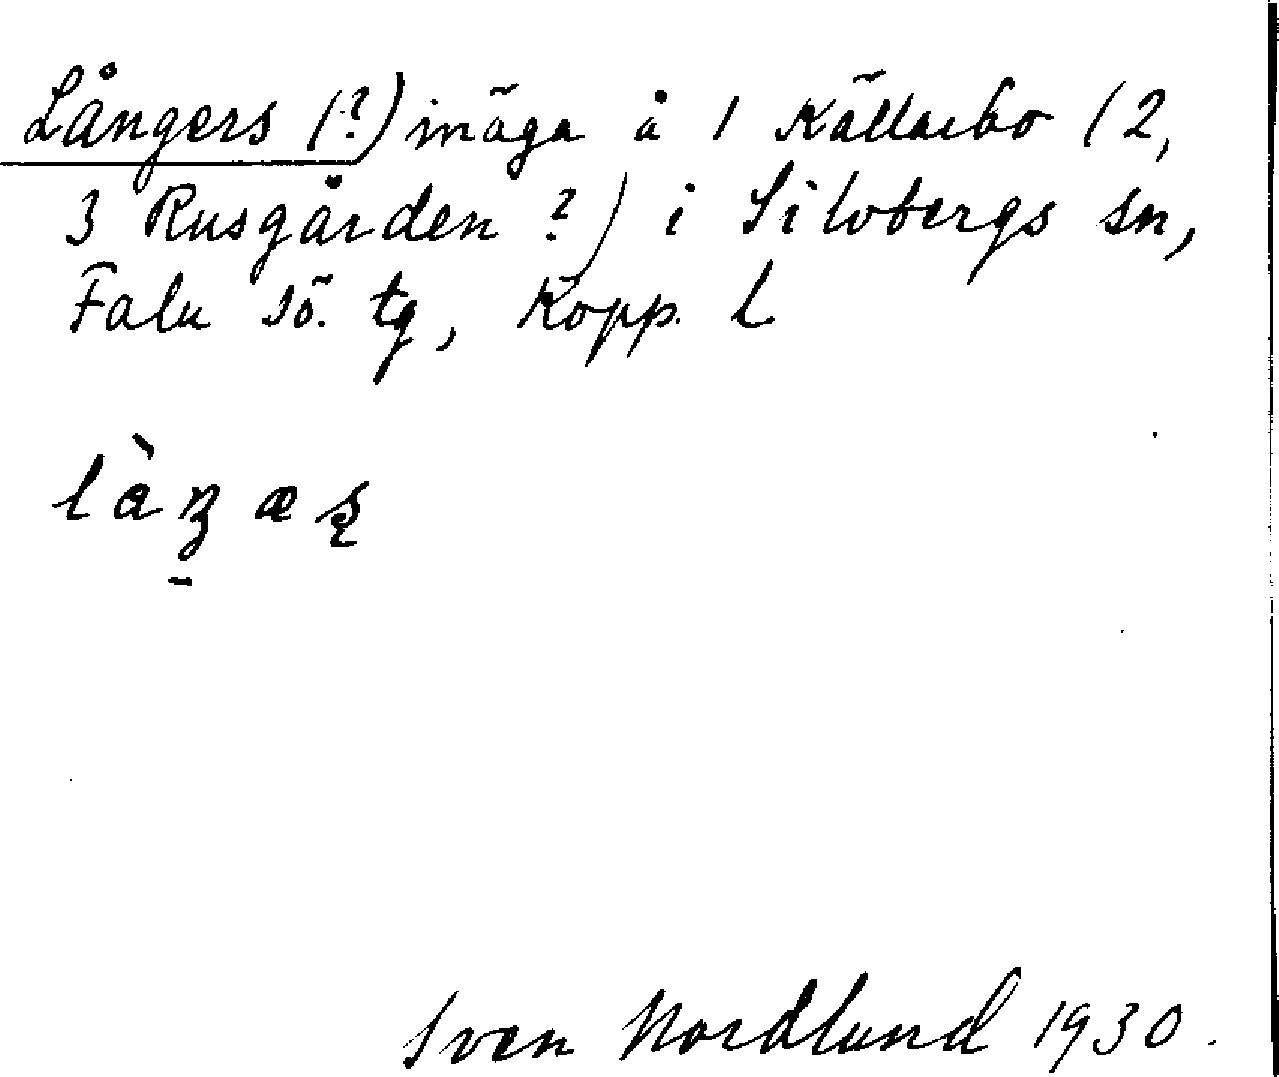 Långers (?) inäga å 1 Källarbo (2,
3 Rusgården ?) i Silvbergs sn,
Falu sö. tg, Kopp. l
Sven Nordlund 1930.